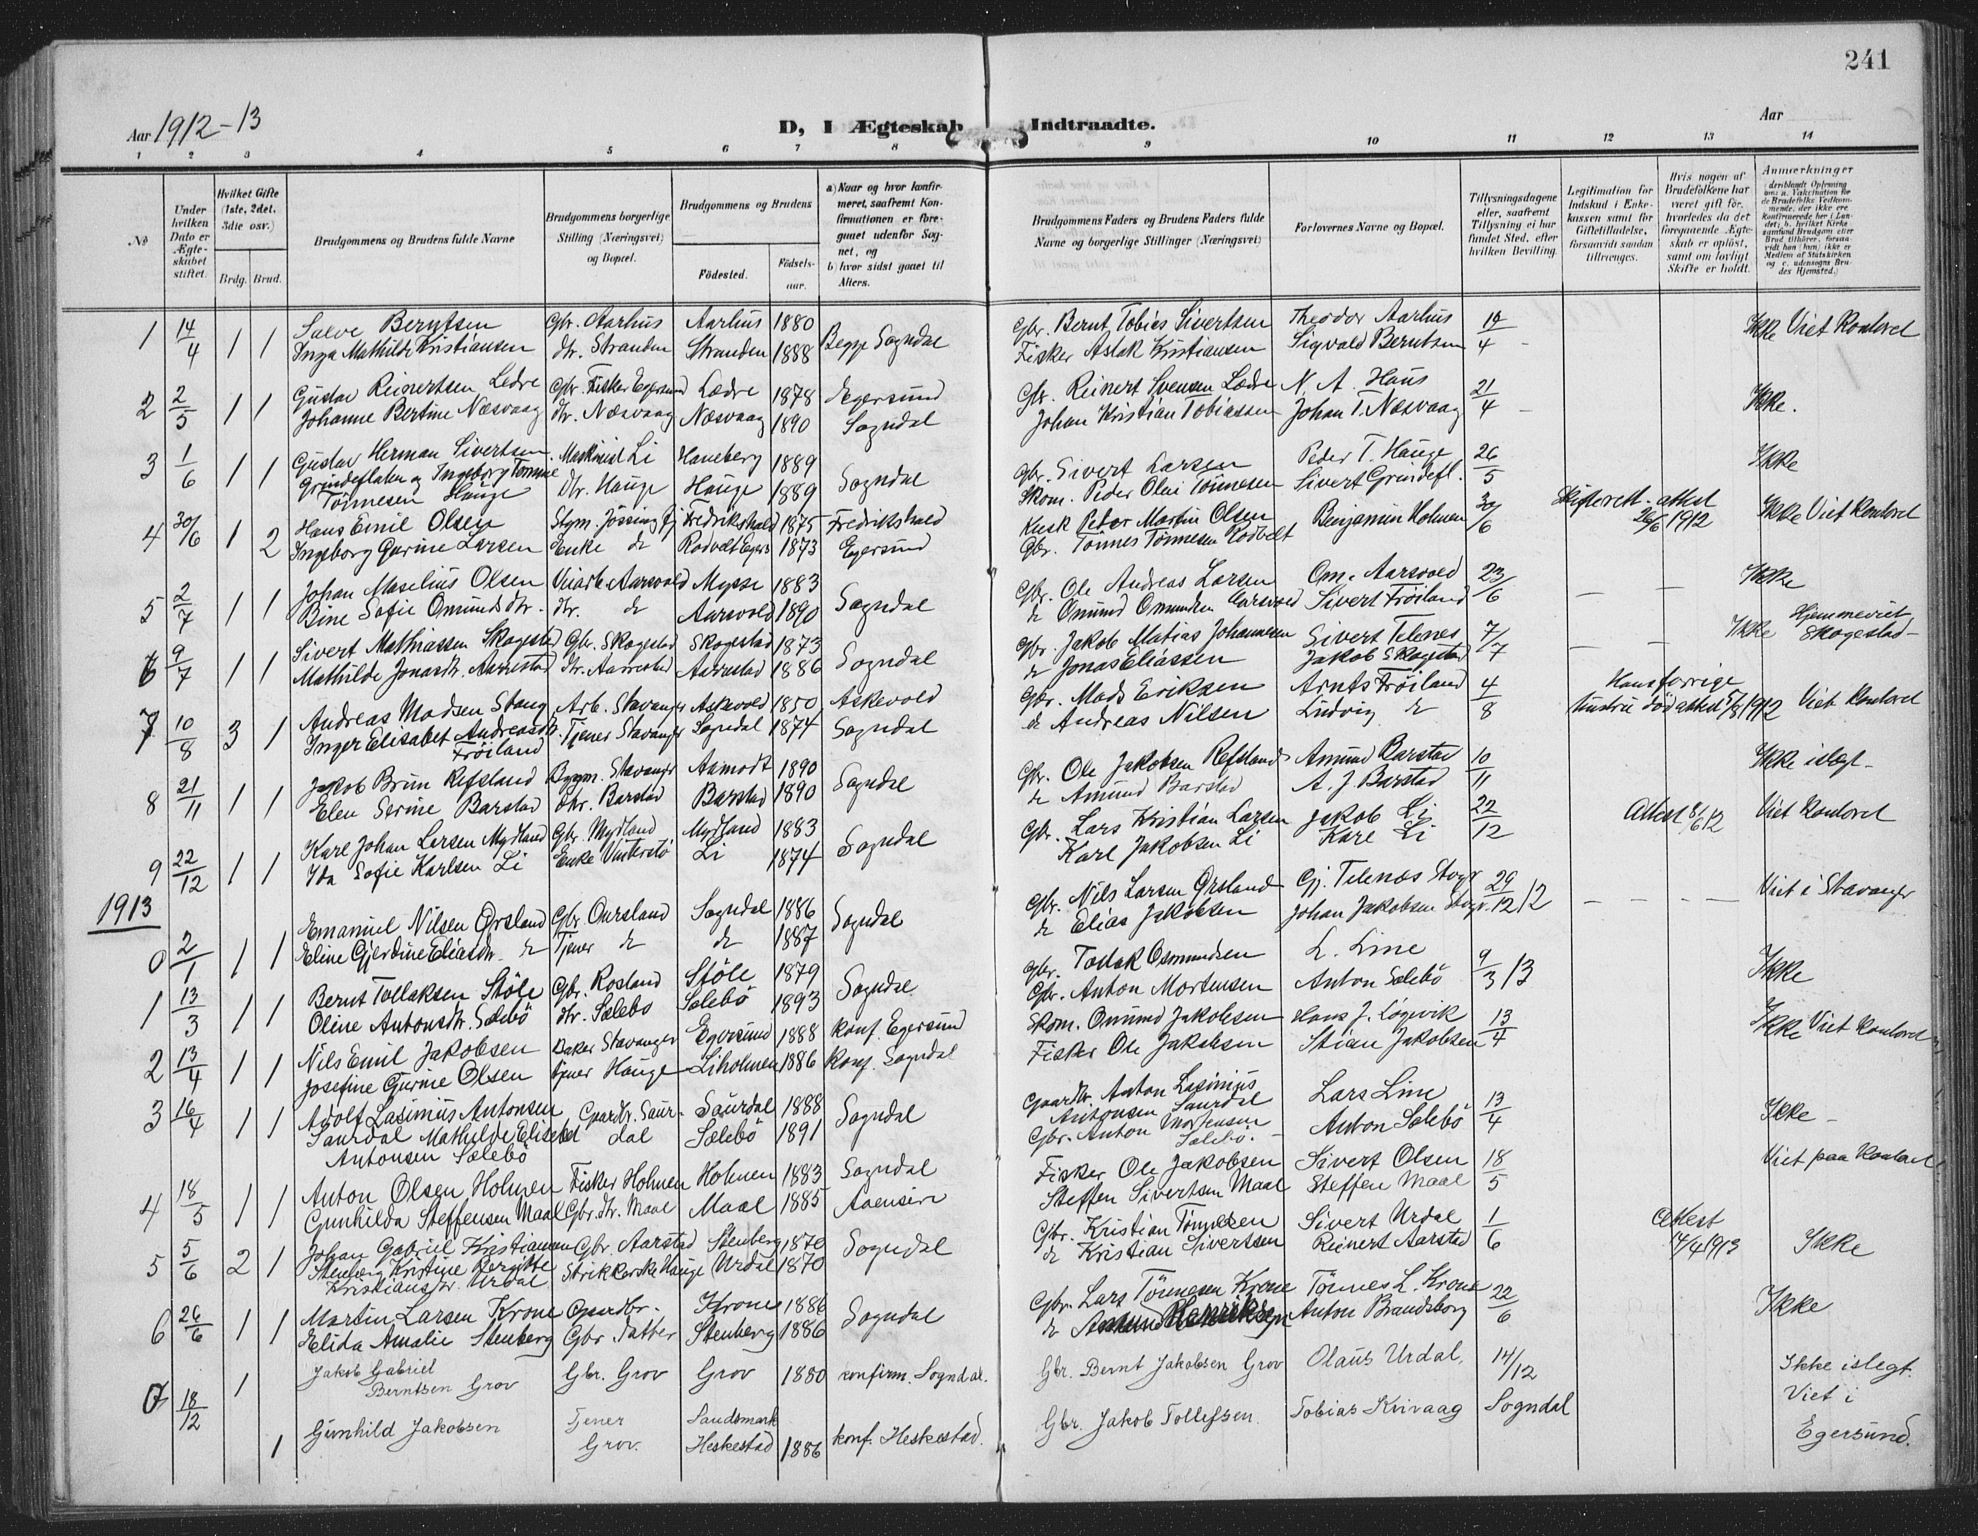 241
Aar 1912-13
D, I Ægteskab Indtraadte.
Aar
1 2 3 4 5 6 7 8 9 10 11 12 13 14
No
Under hvilken Dato er Ægteskabet stiftet.
Hvilket Gifte (1ste, 2det, 3die osv.)
Brdg. Brud.
Brudgommens og Brudens fulde Navne
Brudgommens borgerlige Stilling (Næringsvei) og Bopæl.
Brudgommens og Brudens
Födested. Födselsaar.
a) Naar og hvor konfirmeret, saafremt Konfirmationen er foregaaet udenfor Sognet, og
b) hvor sidst gaaet til Alters.
Brudgommens Faders og Brudens Faders fulde Navne og borgerlige Stillinger (Næringsvei)
Forlovernes Navne og Bopæl.
Tillysningsdagene eller, saafremt Tillysning ei har fundet Sted, efter hvilken Bevilling.
Legitimation for Indskud i Enkekassen samt for Giftetilladelse, forsaavidt saadan tiltrænges.
Hvis nogen af Brudefolkene har været gift för, hvorledes da det foregaaende Ægteskab er oplöst, samt om lovligt Skifte er holdt.
Anmærkninger
1 14/4 1 1 Salve Berntsen Gbr. Aarhus Aarhus 1880 Begge Sogndal Gbr. Bernt Tobias Sivertsen Theodor Aarhus Ikke Viet Kontoret
Inga Mathilde Kristiansen dtr. Stranden Stranden 1888 Fisker Aslak Kristiansen Sigvald Berntsen
2 2/5 1 1 Gustav Reinertsen Ledre Gbr. Fisker Egersund Lædre 1878 Egersund Gbr. Reinert Svensen Lædre N. A. Haus 21/4 Ikke.
Johanne Bertine Næsvaag dtr. Næsvaag Næsvaag 1890 Sogndal Johan Kristian Tobiassen Johan T. Næsvaag
3 1/6 1 1 Gustav Herman Sivertsen Maskinist Li Haneberg 1889 Sogndal Gbr. Sivert Larsen Peder T. Hauge 26/5 Ikke
Grundeflaten og Ingeborg Tomine Dtr. Hauge Hauge 1889 Skom. Peder Olai Tönnesen Sivert Grundefl.
Tönnesen Hauge
4 30/6 1 2 Hans Emil Olsen Stym. Jössingfj Fredrikshald 1875 Fredrikshald Kusk Peter Martin Olsen Benjamin Holmen 30/6 Skifterett-attest 26/6 1912 Ikke Viet Kontoret
Ingeborg Gurine Larsen Enke do Rodvelt Egers 1873 Egersund Gbr. Tönnes Tönnesen Rodvelt
5 2/7 1 1 Johan Maselius Olsen Aarsvold Mysse 1883 Sogndal Gbr. Ole Andreas Larsen Om. Aarsvold 23/6 Ikke
Bine Sofie Omundsdtr. dtr. do Aarsvold 1890 do Omund Omundsen Aarsvold Sivert Fröiland
6 9/7 1 1 Sivert Mathiassen Skogestad Gbr. Skogestad Skogestad 1873 Sogndal Gbr. Jakob Matias Johannesen Sivert Telenes 7/7 Ikke Hjemmeviet Skogestad
Mathilde Jonasdtr. Aarrestad dtr. Aarrestad Aarrestad 1886 do Jonas Eliassen Jakob Skogestad
7 10/8 3 1 Andreas Madsen Stang Arb. Stavanger Askevold 1850 Askevold Gbr. Mads Eriksen Arnt Fröiland 4/8 Hans forrige Hustru död attest 5/8 1912 Viet Kontoret
Inger Elisabet Andreasdtr. Tjener Stavanger Sogndal 1874 Sogndal do Andreas Nilsen Ludvig do
Fröiland
8 21/11 1 1 Jakob Brun Refsland Bygm. Stavanger Aamodt 1890 Sogndal Gbr. Ole Jakobsen Refsland Amund Barstad 10/11 Ikke islegt
Elen Serine Barstad dtr. Barstad Barstad 1890 do Amund Barstad A. J. Barstad
9 22/12 1 1 Karl Johan Larsen Mydland Gbr. Mydland Mydland 1883 Sogndal Gbr. Lars Kristian Larsen Jakob Li 22/12 Attest 8/6 12 Viet Kontoret
Ida Sofie Karlsen Li Enke Li 1874 Karl Jakobsen Li Karl Li
1913
0 2/1 1 1 Emanuel Nilsen Örsland Gbr. Oursland Sogndal 1886 Sogndal Gbr. Nils Larsen Örsland Gj. Telenæs Sogn 29/12 12 Viet i Stavanger
Eline Gjerdine Eliasdtr. do Tjener do do 1887 do Elias Jakobsen Johan Jakobsen
1 13/3 1 1 Bernt Tollaksen Stöle Gbr. Rosland Stöle 1879 Sogndal Gbr. Tollak Osmundsen L. Line 9/3 13 Ikke
Oline Antonsdtr. Sælebö dtr. Sælebö Sælebö 1893 Gbr. Anton Mortensen Anton Sælebö
2 13/4 1 1 Nils Emil Jakobsen Baker Stavanger Egersund 1888 konf. Egersund Skom. Omund Jakobsen Hans J. Lögevik 13/4 Ikke Viet Kontoret
Josefine Gurine Olsen tjener Hauge Liholmen 1886 konf. Sogndal Fisker Ole Jakobsen Stian Jakobsen
3 16/4 1 1 Adolf Lasimius Antonsen Gaardbr. Saurdal Saurdal 1888 Sogndal Gaardbr. Anton Lasimius Antonsen Saurdal Lars Line 13/4 Ikke
Saurdal Mathilde Elisabet Sælebö 1891 Gbr. Anton Mortensen Sælebö Anton Sælebö
Antonsen Sælebö
4 18/5 1 1 Anton Olsen Holmen Fisker Holmen Holmen 1883 Sogndal Fisker Ole Jakobsen Sivert Olsen 18/5 Viet paa Kontoret
Gunhilda Steffensen Maal Gbr. dtr. Maal Maal 1885 Aaensire Steffen Sivertsen Maal Steffen Maal
5 5/6 2 1 Johan Gabriel Kristiansen Gbr. Aarstad Stenberg 1870 Sogndal Gbr. Kristian Tönnesen Sivert Urdal 1/6 Attest 14/4 1913 Ikke
Stenberg Kristine Bergitte Strikkerske Hauge Urdal 1870 do Kristian Sivertsen Reinert Aarstad
Kristiansdtr. Urdal
6 26/6 1 1 Martin Larsen Krone Gaardbr. Krone 1886 Sogndal Gbr. Lars Tönnesen Krone Tönnes L. Krone 22/6 Ikke
Elida Amalie Stenberg Gbr. Datter Stenberg 1886 do Anton Brandsborg
18/12 1 Jakob Gabriel Berntsen Grov Gbr. Grov Grov 1880 konfirm. Sogndal. Gbr. Bernt Jakobsen Grov Olaus Urdal. 14/12 Ikke islegt. Viet i Egersund.
1 Gunhild Jakobsen Tjener Grov. Sandsmark Heskestad 1886 konf. Heskestad. Gbr. Jakob Tollefsen. Tobias Kvivaag Sogndal